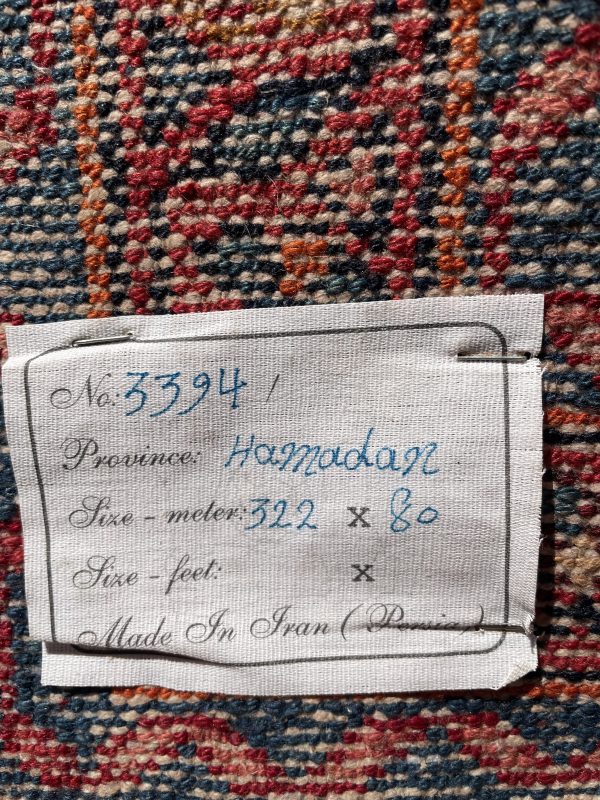 No.: 3394 /
Province: Hamadan
Size - meter: 322 x 80
Size - feet: x
Made In Iran ( Persia )